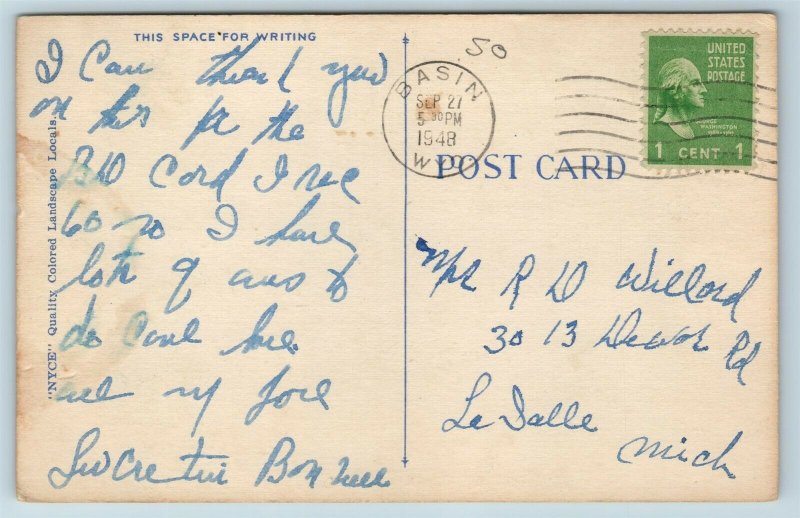 THIS SPACE FOR WRITING
I Can thank you
on his for the
BD Cord I rec
60 so I have
lots of ans to
do Come here
all my love
Lucretia Bonnell
"NYCE" Quality Colored Landscape Locals.
50
BASIN
SEP 27
5 30 PM
1948
WYO
UNITED
STATES
POSTAGE
GEORGE
WASHINGTON
1 CENT 1
POST CARD
Mrs R D Willord
3013 Rd
La Salle
Mich